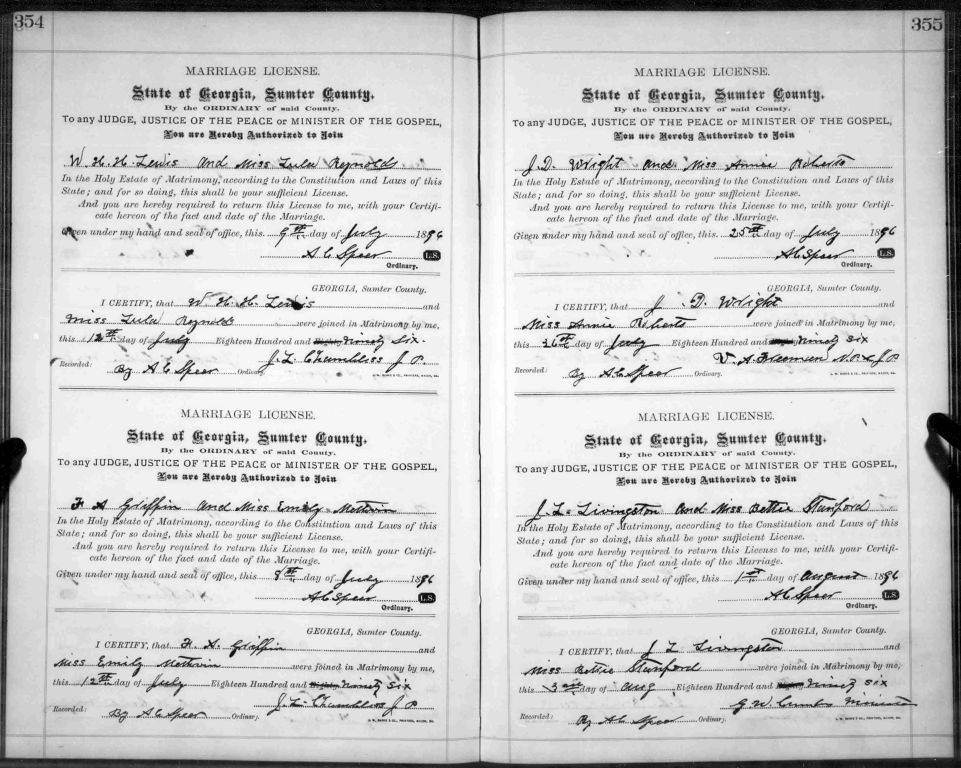 354
MARRIAGE LICENSE.
State of Georgia, Sumter County.
By the ORDINARY of said County.
To any JUDGE, JUSTICE OF THE PEACE or MINISTER OF THE GOSPEL,
You are Hereby Authorized to Join
W. H. H. Lewis and Miss Lula Reynolds
In the Holy Estate of Matrimony, according to the Constitution and Laws of this
State; and for so doing, this shall be your sufficient License.
And you are hereby required to return this License to me, with your Certifi-
cate hereon of the fact and date of the Marriage.
Given under my hand and seal of office, this 9th day of July 1896
A C Speer L.S.
Ordinary.
GEORGIA, Sumter County.
I CERTIFY, that W. H. H. Lewis and
Miss Lula Reynolds were joined in Matrimony by me,
this 12th day of July Eighteen Hundred and Eighty Ninety Six.
J. L. Chambliss J. P.
Recorded: By A C Speer Ordinary.
MARRIAGE LICENSE.
State of Georgia, Sumter County.
By the ORDINARY of said County.
To any JUDGE, JUSTICE OF THE PEACE or MINISTER OF THE GOSPEL,
You are Hereby Authorized to Join
F A Griffin and Miss Emily
In the Holy Estate of Matrimony, according to the Constitution and Laws of this
State; and for so doing, this shall be your sufficient License.
And you are hereby required to return this License to me, with your Certifi-
cate hereon of the fact and date of the Marriage.
Given under my hand and seal of office, this 8th day of July 1896
A C Speer L.S.
Ordinary.
GEORGIA, Sumter County.
I CERTIFY, that F. A. Griffin and
Miss Emily were joined in Matrimony by me,
this 12th day of July Eighteen Hundred and Eighty Ninety Six
J. L. Chambliss J P
Recorded: By A C Speer Ordinary.
355
MARRIAGE LICENSE.
State of Georgia, Sumter County.
By the ORDINARY of said County.
To any JUDGE, JUSTICE OF THE PEACE or MINISTER OF THE GOSPEL,
You are Hereby Authorized to Join
J. D. Wright and Miss Annie Roberts
In the Holy Estate of Matrimony, according to the Constitution and Laws of this
State; and for so doing, this shall be your sufficient License.
And you are hereby required to return this License to me, with your Certifi-
cate hereon of the fact and date of the Marriage.
Given under my hand and seal of office, this 25th day of July 1896
A C Speer L.S.
Ordinary.
GEORGIA, Sumter County.
I CERTIFY, that J. D. Wright and
Miss Annie Roberts were joined in Matrimony by me,
this 26th day of July Eighteen Hundred and Eighty Ninety Six
A. Freeman N. P. & J P
Recorded: By A C Speer Ordinary.
MARRIAGE LICENSE.
State of Georgia, Sumter County.
By the ORDINARY of said County.
To any JUDGE, JUSTICE OF THE PEACE or MINISTER OF THE GOSPEL,
You are Hereby Authorized to Join
J. L. Livingston and Miss Bettie Stanford
In the Holy Estate of Matrimony, according to the Constitution and Laws of this
State; and for so doing, this shall be your sufficient License.
And you are hereby required to return this License to me, with your Certifi-
cate hereon of the fact and date of the Marriage.
Given under my hand and seal of office, this 1st day of August 1896
A C Speer L.S.
Ordinary.
GEORGIA, Sumter County.
I CERTIFY, that J L Livingston and
Miss Bettie Stanford were joined in Matrimony by me,
this 3 day of Aug Eighteen Hundred and Eighty Ninety Six
G. W. Minister
Recorded: By A C Speer Ordinary.